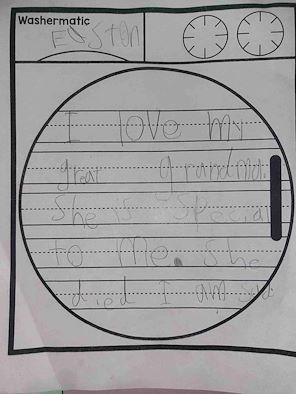 Washermatic
EASTON
I love my
great grandma.
She is special
to me. She
died I am sad